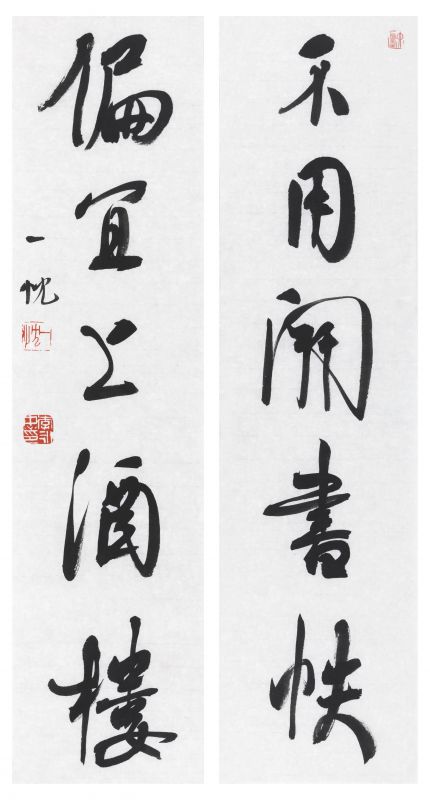 不用開書帙
偏宜上酒樓
一忱